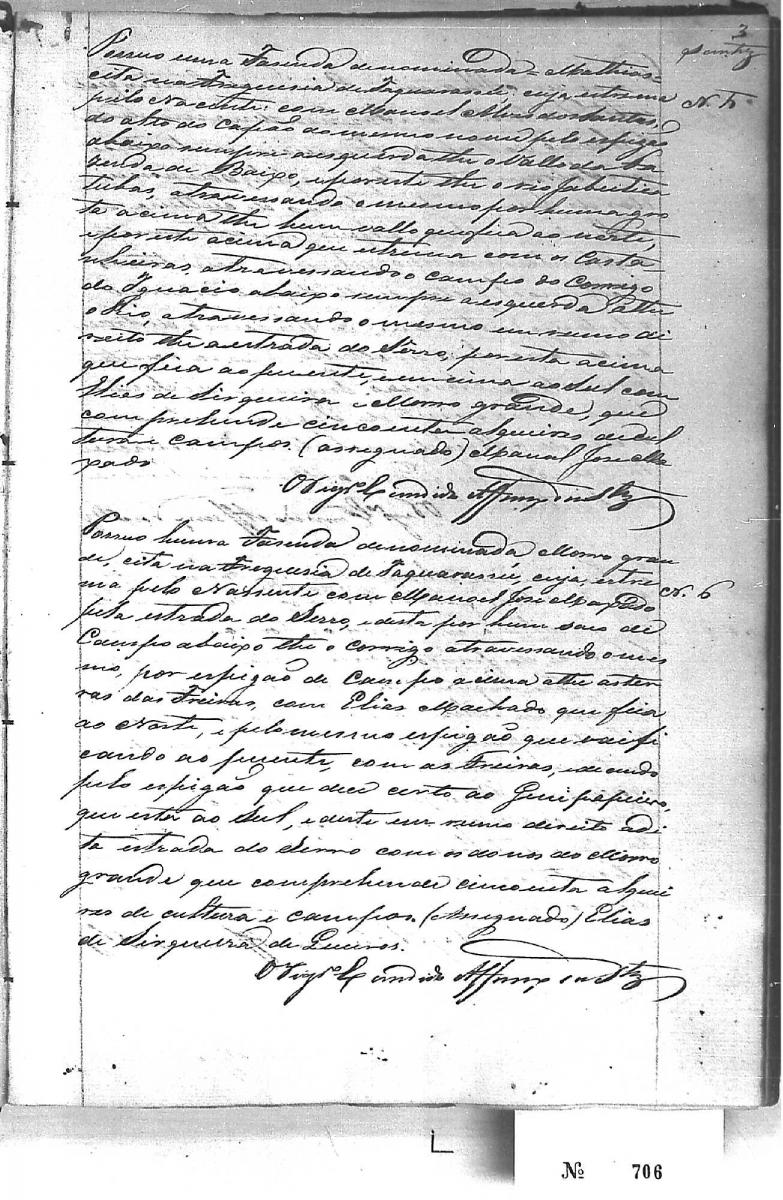 3
Possuo huma Fazenda denominada = Mathias =
cita na Freguesia de Taquarassú cuja estrema
N. 5
pelo Nascente com Manoel
do alto do capão do mesmo nome pelo espigão
abaixo sempre a esquerda the o Vallo da Fa
zenda de Baixo, e por este the o rio Jaboticá
tubas, atravessando o mesmo por huma gro
ta acima the hum vallo que fica ao norte,
e por este acima que estrema com os Casta
nheiras, atravessando o campo do Corrigo
do Ignacio abaixo sempre a esquerda athe
o Rio, atravessando o mesmo em rumo di
reito the a estrada do Serro, por esta acima
que fica ao poente, e em cima ao Sul com
Elias de Sirqueira e Morro grande, que
comprehende cincoenta alqueires de cul
tura e campos. (assegnado) Manoel José Ma
xado
O Vigr.o Candido Affonso
Possuo huma Fazenda denominada Morro gran
de, cita na Freguesia de Taquarassú, cuja estre
N. 6
ma pelo Nascente com Manoel José Maxado
pela estrada do Serro, e desta por hum saco de
Campo abaixo the o corrigo atravessando o mes
mo, por espigão de campo acima athe as ter
ras das Freiras, com Elias Machado que fica
ao Norte, e pelo mesmo espigão que vai fi
cando ao poente, com as Freiras, e
pelo espigão que dece certo ao Genipapeiro,
que está ao Sul, e deste em rumo direito a di
ta estrada do Serro com os donos do Morro
grande que comprehende cincoenta alquei
res de cultura e campos. (Assegnado) Elias
de Sirqueira de Queiros.
O Vigr.o Candido Affonso
Nº 706